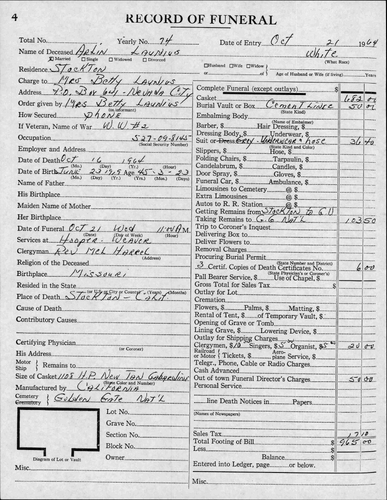 4 RECORD OF FUNERAL
Total No. Yearly No. 74 Date of Entry Oct 21 1964
Name of Deceased Arlin Launius White
(What Race)
Married Single Widowed Divorced
Husband Wife Widow or
Residence Stockton Age of Husband or Wife (if living) Years
Charge to Mrs Betty Launius
Address P.O. Box 604 - Nevada City
Order given by Mrs Betty Launius
How Secured Phone
If Veteran, Name of War W.W. #2
Occupation 527-09-8145
(Social Security Number)
Employer and Address
Date of Death Oct 16 1964
(Mo.) (Day) (Year) (Hour)
Date of Birth June 23 1919 Age 45-3-23
Name of Father
His Birthplace
Maiden Name of Mother
Her Birthplace
Date of Funeral Oct 21 Wed 11:00 A.M.
Services at Hooper - Weaver
Clergyman Rev Mel Harrel
Religion of the Deceased
Birthplace Missouri
Resided in the State
Place of Death Stockton - Calif
Cause of Death
Contributory Causes
Certifying Physician
(or Coroner)
His Address
Motor
Ship Remains to
Size of Casket 1108 H.P. New Tan Gabardine
(State Color and Number)
Manufactured by California
Cemetery
Crematory Golden Gate Nat'l
Lot No.
Grave No.
Section No.
Block No.
Owner
Diagram of Lot or Vault
Misc.
Complete Funeral (except outlays) $
Casket 682.00
Burial Vault or Box Cement Liner 50.00
(State Kind)
Embalming Body
(Name of Embalmer)
Barber, $ Hair Dressing, $
Dressing Body, $ Underwear, $
Suit or Dress Grey Underwear & Hose 36.40
(State Kind and Color)
Slippers, $ Hose, $
Folding Chairs, $ Tarpaulin, $
Candelabrum, $ Candles, $
Door Spray, $ Gloves, $
Funeral Car, $ Ambulance, $
Limousines to Cemetery @ $
Extra Limousines @ $
Autos to R. R. Station @ $
Getting Remains from Stockton to G.V.
Taking Remains to G.G. Nat'l 103.50
Trip to Coroner's Inquest
Delivering Box to
Deliver Flowers to
Removal Charges
Procuring Burial Permit
(State Number and District)
3 Certif. Copies of Death Certificates No. 6.00
(State Physician's or Coroner's)
Pall Bearer Service, $ Use of Chapel, $
Gross Total for Sales Tax $
Outlay for Lot
Cremation
Flowers, $ Palms, $ Matting, $
Rental of Tent, $ of Temporary Vault, $
Opening of Grave or Tomb
Lining Grave, $ Lowering Device, $
Outlay for Shipping Charges
Clergyman, $10 Singers, $5 Organist, $5 20.00
Railroad
or Motor Tickets, $ Aero-
plane Service, $
Telegr., Phone, Cable or Radio Charges
Cash Advanced
Out of town Funeral Director's Charges 50.00
Personal Services
line Death Notices in Papers
(Names of Newspapers)
Sales Tax 17.10
Total Footing of Bill $ 965.00
Less $
Balance $
Entered into Ledger, page or below.
Misc.